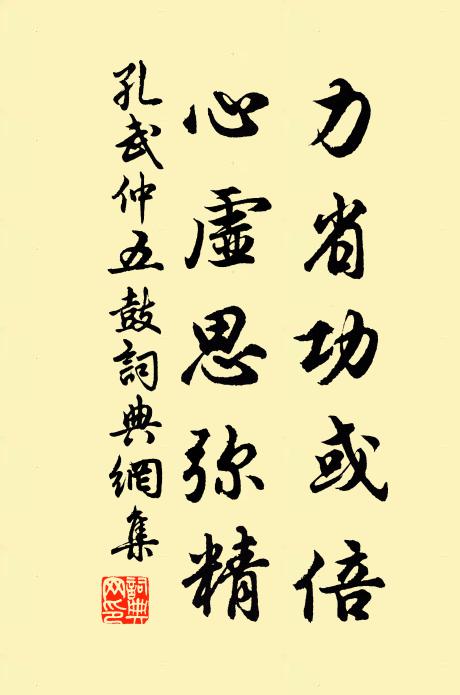 力省功或倍
心虛思弥精
孔武仲五鼓詞典網集
詞典网印